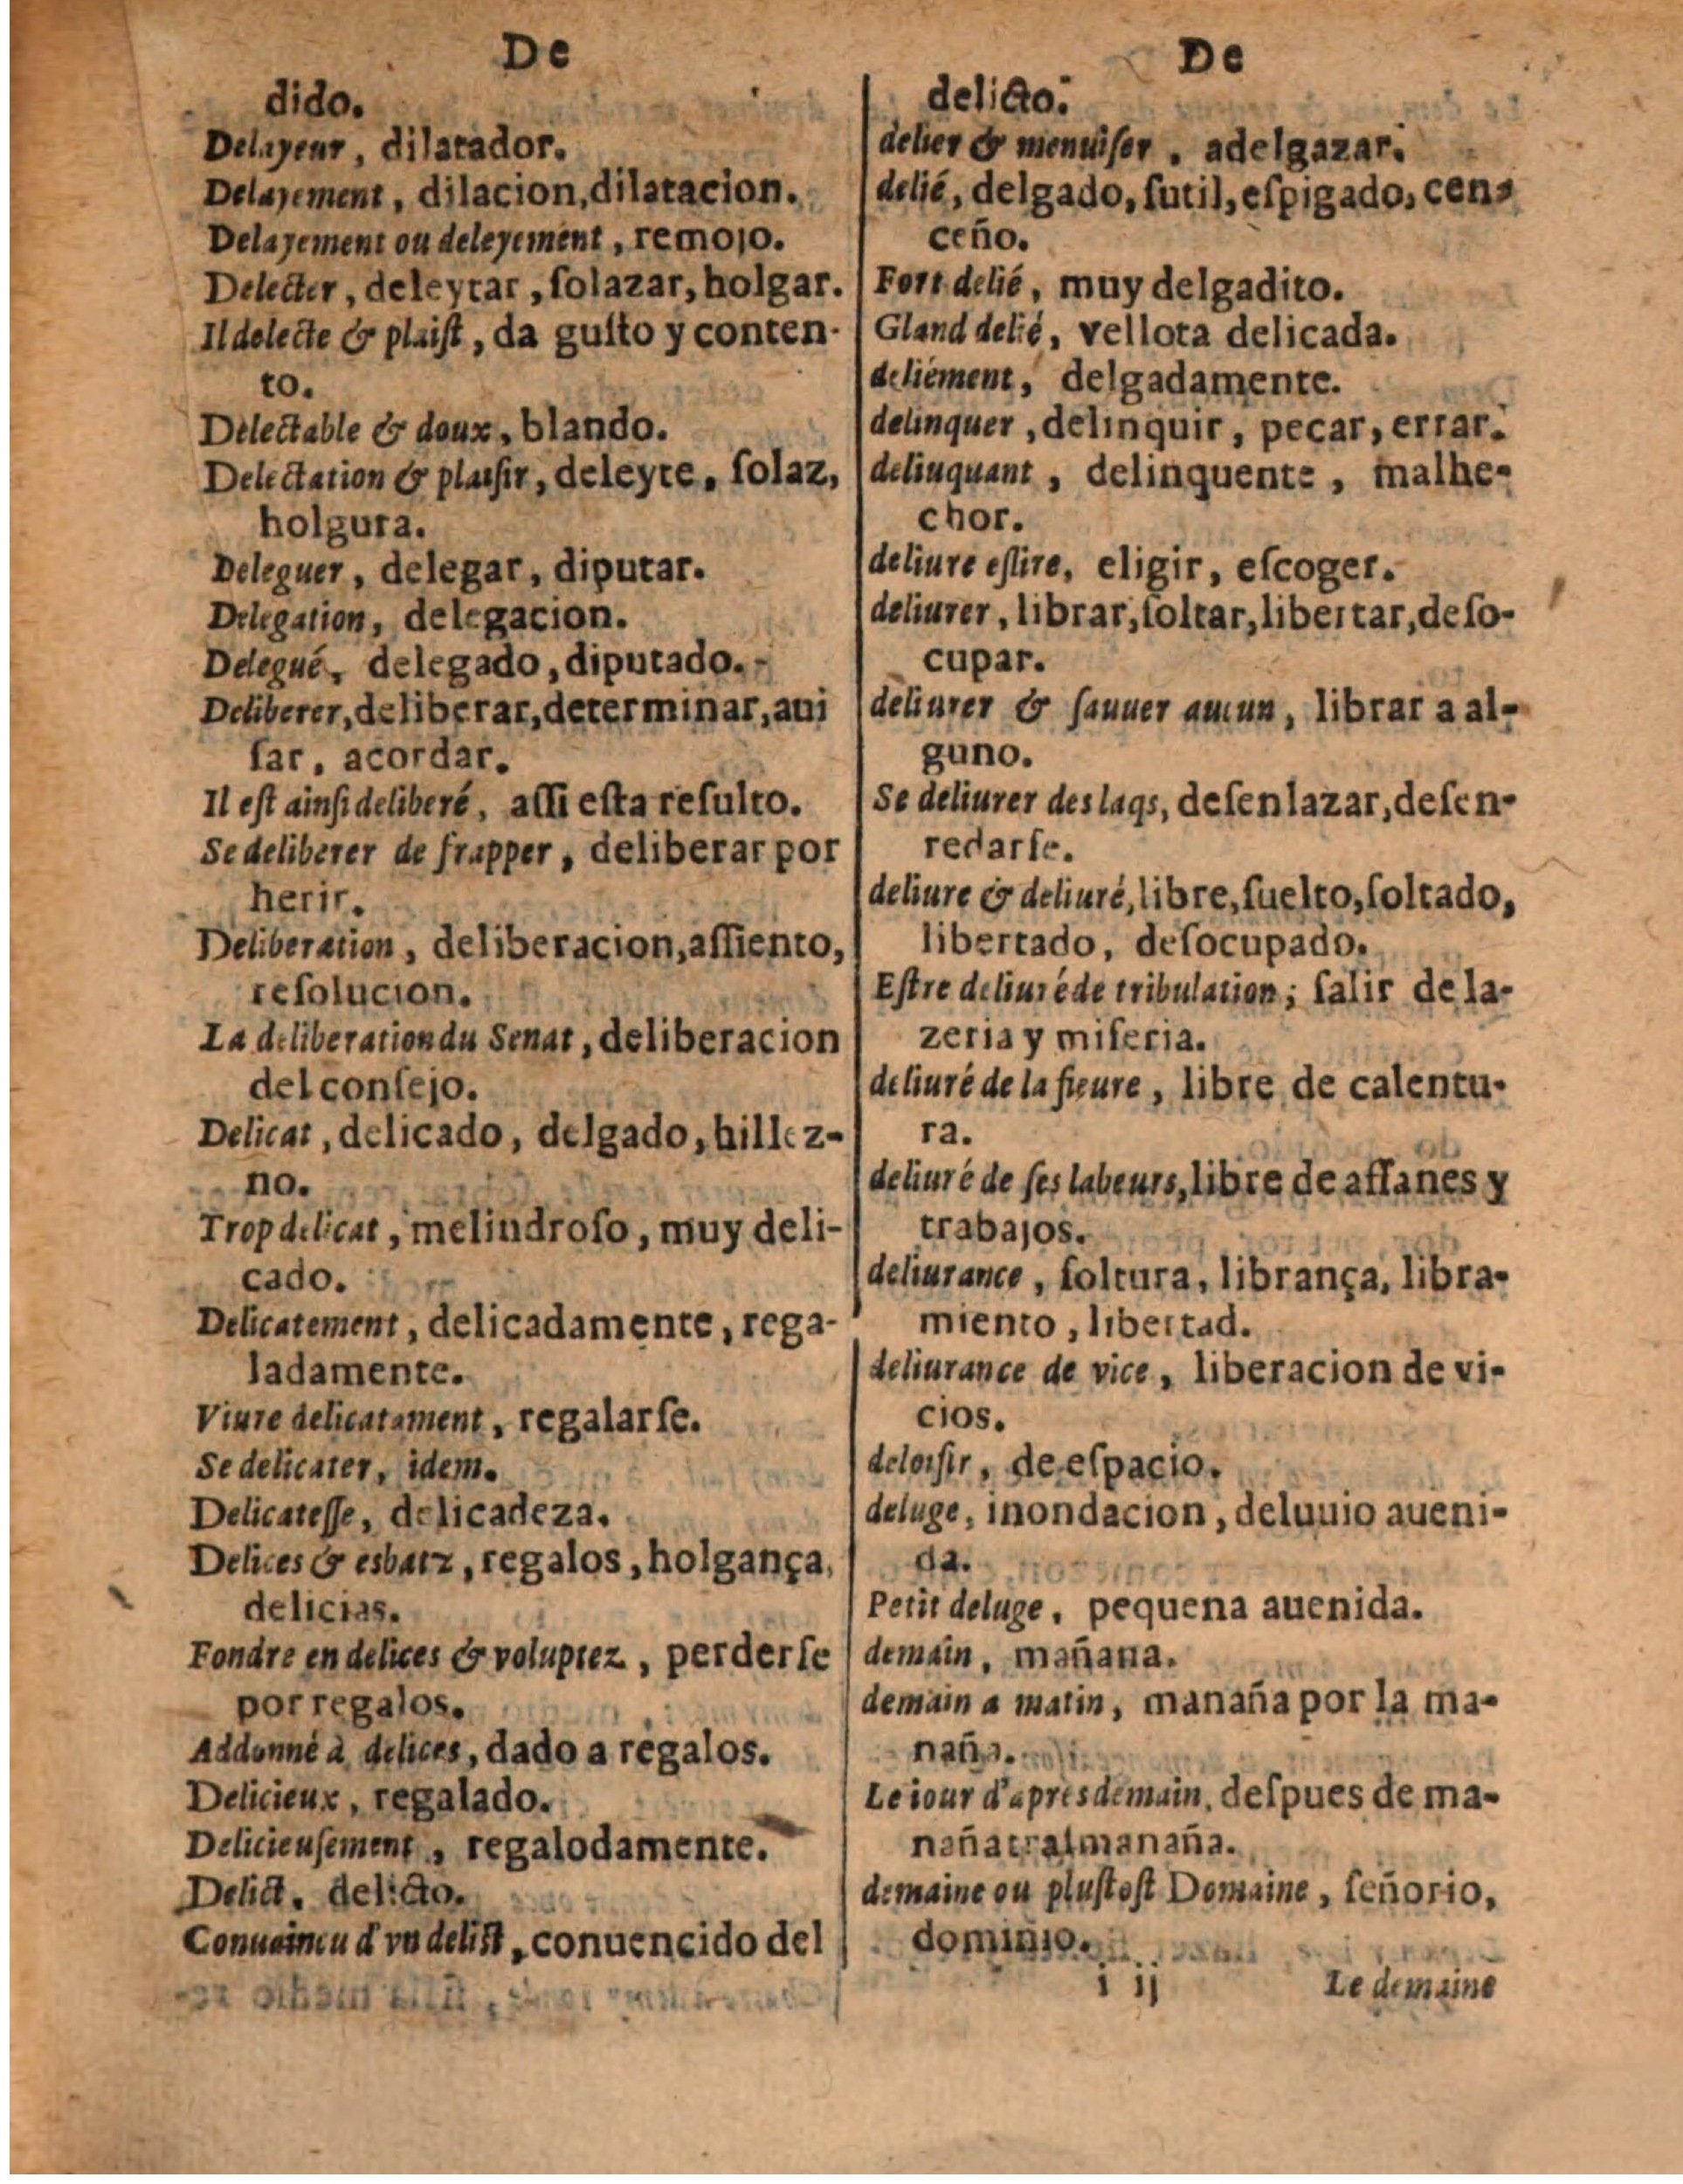 De
dido.
Delayeur, dilatador.
Delayement, dilacion, dilatacion.
Delayement ou deleyement, remojo.
Delecter, deleytar, ſolazar, holgar.
Il delecte & plaiſt, da guſto y conten-
to.
Delectable & doux, blando.
Delectation & plaiſir, deleyte, ſolaz,
holgura.
Deleguer, delegar, diputar.
Delegation, delegacion.
Delegué, delegado, diputado.
Deliberer, deliberar, determinar, aui
ſar, acordar.
Il eſt ainſi deliberé, aſſi eſta reſulto.
Se deliberer de frapper, deliberar por
herir.
Deliberation, deliberacion, aſſiento,
reſolucion.
La deliberation du Senat, deliberacion
del conſejo.
Delicat, delicado, delgado, hillez-
no.
Trop delicat, melindroſo, muy deli-
cado.
Delicatement, delicadamente, rega-
ladamente.
Viure delicatament, regalarſe.
Se delicater, idem.
Delicateſſe, delicadeza.
Delices & esbatz, regalos, holgança,
delicias.
Fondre en delices & voluptez, perderſe
por regalos.
Addonné à delices, dado a regalos.
Delicieux, regalado.
Delicieuſement, regalodamente.
Delict, delicto.
Conuaincu d'vn delist, conuencido del
De
delicto.
delier & menuiſer, adelgazar.
delié, delgado, ſutil, eſpigado, cen-
ceño.
Fort delié, muy delgadito.
Gland delié, vellota delicada.
deliément, delgadamente.
delinquer, delinquir, pecar, errar.
deliuquant, delinquente, malhe-
chor.
deliure eſlire, eligir, eſcoger.
deliurer, librar, ſoltar, libertar, deſo-
cupar.
deliurer & ſauuer aucun, librar a al-
guno.
Se deliurer des laqs, deſenlazar, deſen-
redarſe.
deliure & deliuré, libre, ſuelto, ſoltado,
libertado, deſocupado.
Eſtre deliuré de tribulation; ſalir de la-
zeria y miſeria.
deliuré de la fieure, libre de calentu-
ra.
deliuré de ſes labeurs, libre de affanes y
trabajos.
deliurance, ſoltura, librança, libra-
miento, libertad.
deliurance de vice, liberacion de vi-
cios.
deloiſir, de eſpacio.
deluge, inondacion, deluuio aueni-
da.
Petit deluge, pequena auenida.
demain, mañana.
demain a matin, manaña por la ma-
naña.
Le iour d'apres demain, deſpues de ma-
nañatraſmanaña.
demaine ou pluſtoſt Domaine, ſeñorio,
dominio.
i ij Le demaine